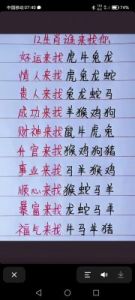 中国移动 07:40
12生肖谁来找你
好运来找 虎牛兔龙
情人来找 兔龙蛇
贵人来找 龙蛇马
成功来找 羊猴鸡狗
财神来找 鼠牛虎兔
升官来找 猴鸡狗猪
事业来找 马羊猴鸡
顺心来找 猴蛇马羊
暴富来找 龙蛇马羊
福气来找 牛马羊猪